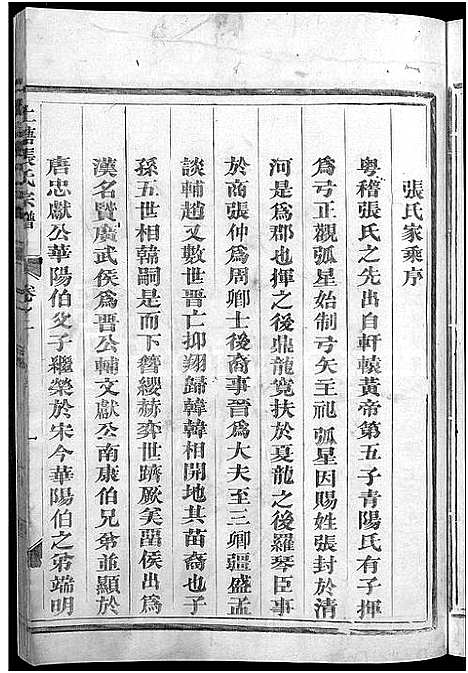 張氏家乘序
粵稽張氏之先出自軒轅黃帝第五子青陽氏有子揮
為弓正觀弧星始制弓矢王祀弧星因賜姓張封於清
河是為郡也揮之後鼎龍寬扶於夏龍之後羅琴臣事
於商張仲為周卿士後裔事晉為大夫至三卿疆盛孟
談輔趙又數世晉亡抑翔歸韓韓相開地其苗裔也子
孫五世相韓嗣是而下簪纓赫弈世躋厥美留侯出為
漢名賢廣武侯為晉公輔文獻公南康伯兄弟並顯於
唐忠獻公華陽伯父子繼榮於宋今華陽伯之弟端明
張氏宗譜
卷之一